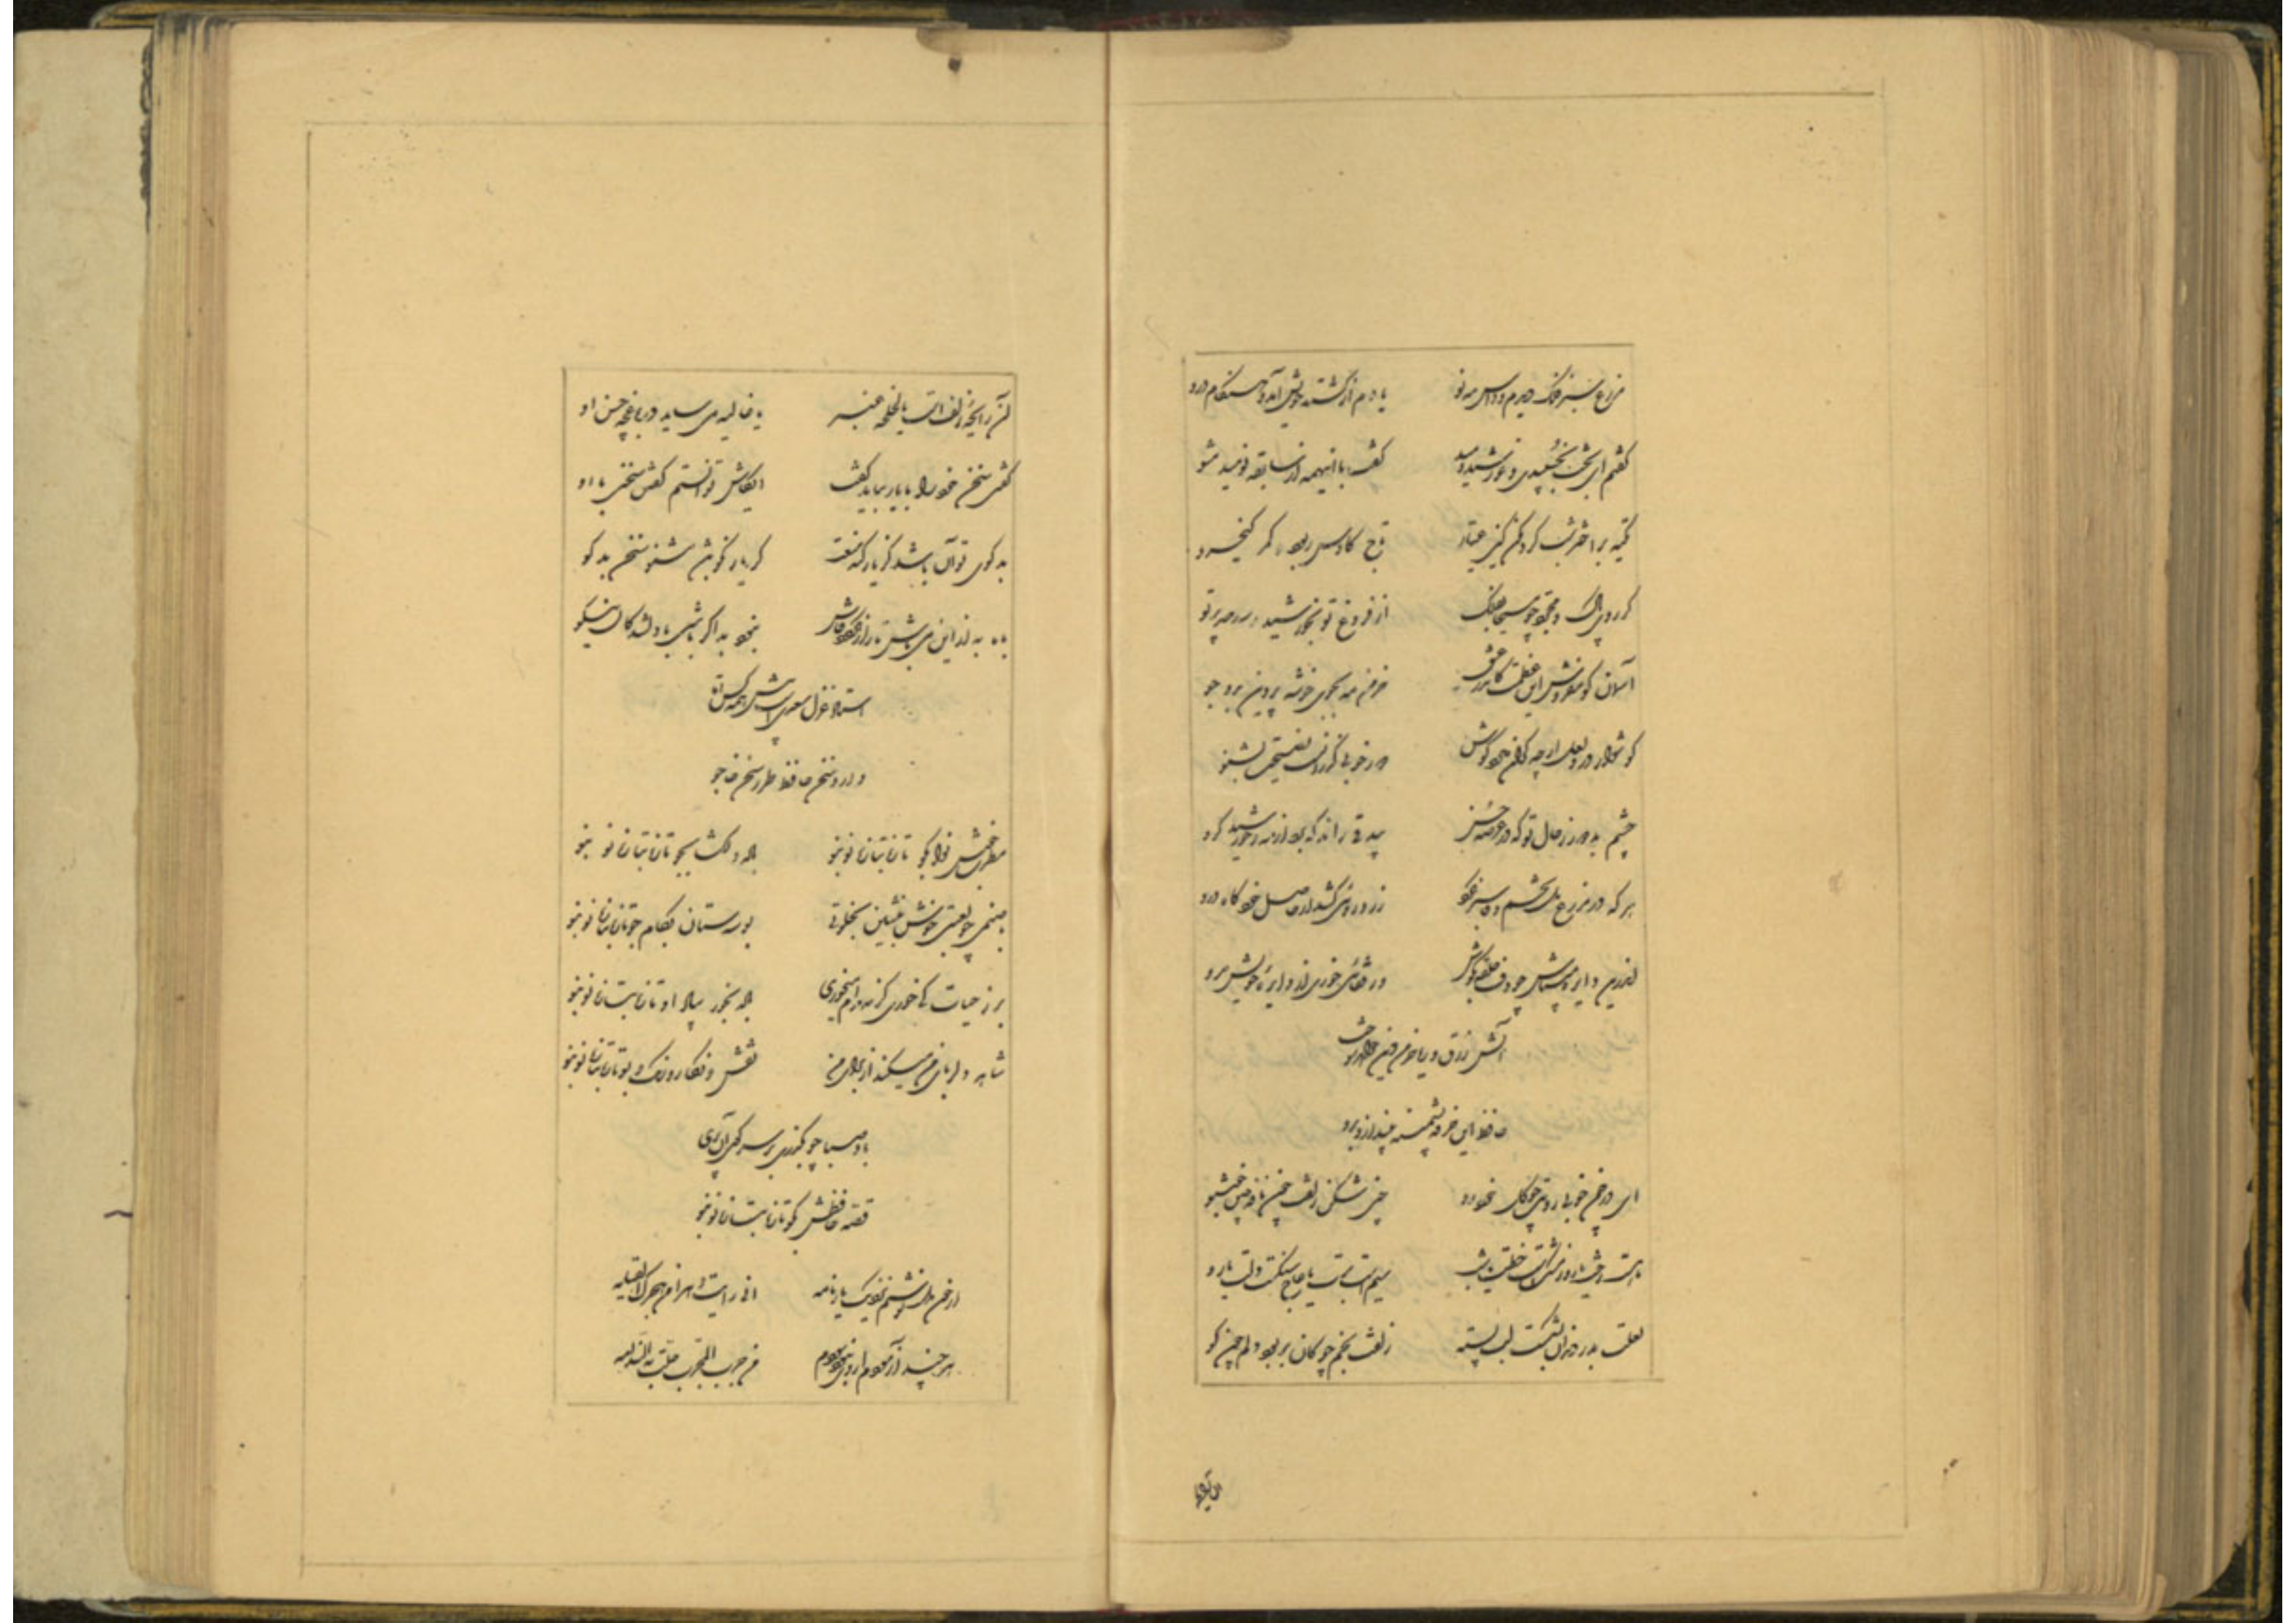 مزرع سبز فلک دیدم و داس مه نو یادم از کشته خویش آمد و هنگام درو
گفتم ای بخت بخسبیدی و خورشید دمید گفت با اینهمه از سابقه نومید مشو
تکیه بر اختر شب گرد مکن کین عیار تاج کاوس ربود و کمر کیخسرو
گر روی پاک و مجرد چو مسیحا بفلک از فروغ تو بخورشید رسد صد پرتو
آسمان گو مفروش این عظمت کاندر عشق خرمن مه بجوی خوشه پروین بدو جو
گوشوار در و لعل ارچه گران دارد گوش دور خوبی گذرانست نصیحت بشنو
چشم بد دور ز خال تو که در عرصه حسن بیدقی راند که برد از مه و خورشید گرو
هر که در مزرع دل تخم وفا سبز نکرد زرد رویی کشد از حاصل خود گاه درو
اندرین دایره میباش چو دف حلقه بگوش ور قفائی خوری از دایره خویش مرو
آتش زرق و ریا خرمن دین خواهد سوخت
حافظ این خرقه پشمینه بینداز و برو
ای در چمن خوبی رویت چو گل خودرو چین شکن زلفت چون نافه چین خوشبو
لعلت بدر دندان بشکست لب پسته زلفت بخم چوگان بربود دلم چون گو
آن رایحه زلف است یا لخلخه عنبر یا غالیه می ساید در باغچه حسن او
گفتی سخن خود را با یار بباید گفت ایکاش توانستم گفتن سخنی با او
بدگوی تو آن باشد کز یار کند منعت گر یار نکو باشد مشنو سخن بدگو
استاد غزل سعدیست پیش همه کس اما
دارد سخن حافظ طرز سخن خواجو
مطرب خوش نوا بگو تازه بتازه نو بنو باده دلگشا بجو تازه بتازه نو بنو
با صنمی چو لعبتی خوش بنشین بخلوتی بوسه ستان بکام ازو تازه بتازه نو بنو
بر ز حیات کی خوری گر نه مدام می خوری باده بخور بیاد او تازه بتازه نو بنو
شاهد دلربای من میکند از برای من نقش و نگار و رنگ و بو تازه بتازه نو بنو
باد صبا چو بگذری بر سر کوی آن پری
قصه حافظش بگو تازه بتازه نو بنو
از خون دل نوشتم نزدیک یار نامه انی رایت دهرا من هجرک القیامه
هر چند آزمودم از وی نبود سودم من جرب المجرب حلت به الندامه